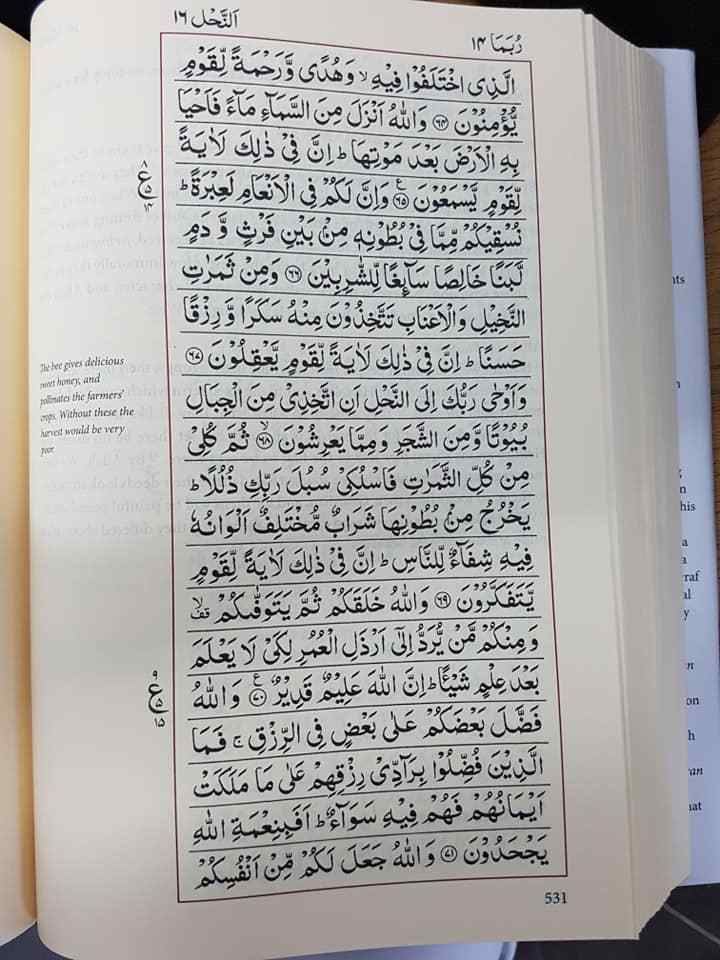 رُبَمَا ۱۴
اَلنَّحْل ۱۶
الَّذِی اخْتَلَفُوْا فِیْهِ ۙ وَ هُدًی وَّ رَحْمَةً لِّقَوْمٍ
یُّؤْمِنُوْنَ ﴿۶۴﴾ وَ اللّٰهُ اَنْزَلَ مِنَ السَّمَآءِ مَآءً فَاَحْیَا
بِهِ الْاَرْضَ بَعْدَ مَوْتِهَا ؕ اِنَّ فِیْ ذٰلِكَ لَاٰیَةً
لِّقَوْمٍ یَّسْمَعُوْنَ ﴿۶۵﴾ ع وَ اِنَّ لَكُمْ فِی الْاَنْعَامِ لَعِبْرَةً ؕ
نُسْقِیْكُمْ مِّمَّا فِیْ بُطُوْنِهٖ مِنْۢ بَیْنِ فَرْثٍ وَّ دَمٍ
لَّبَنًا خَالِصًا سَآىِٕغًا لِّلشّٰرِبِیْنَ ﴿۶۶﴾ وَ مِنْ ثَمَرٰتِ
النَّخِیْلِ وَ الْاَعْنَابِ تَتَّخِذُوْنَ مِنْهُ سَكَرًا وَّ رِزْقًا
حَسَنًا ؕ اِنَّ فِیْ ذٰلِكَ لَاٰیَةً لِّقَوْمٍ یَّعْقِلُوْنَ ﴿۶۷﴾
وَ اَوْحٰی رَبُّكَ اِلَی النَّحْلِ اَنِ اتَّخِذِیْ مِنَ الْجِبَالِ
بُیُوْتًا وَّ مِنَ الشَّجَرِ وَ مِمَّا یَعْرِشُوْنَ ﴿۶۸﴾ ۙ ثُمَّ كُلِیْ
مِنْ كُلِّ الثَّمَرٰتِ فَاسْلُكِیْ سُبُلَ رَبِّكِ ذُلُلًا ؕ
یَخْرُجُ مِنْۢ بُطُوْنِهَا شَرَابٌ مُّخْتَلِفٌ اَلْوَانُهٗ
فِیْهِ شِفَآءٌ لِّلنَّاسِ ؕ اِنَّ فِیْ ذٰلِكَ لَاٰیَةً لِّقَوْمٍ
یَّتَفَكَّرُوْنَ ﴿۶۹﴾ وَ اللّٰهُ خَلَقَكُمْ ثُمَّ یَتَوَفّٰىكُمْ ۙ قف
وَ مِنْكُمْ مَّنْ یُّرَدُّ اِلٰۤی اَرْذَلِ الْعُمُرِ لِكَیْ لَا یَعْلَمَ
بَعْدَ عِلْمٍ شَیْـًٔا ؕ اِنَّ اللّٰهَ عَلِیْمٌ قَدِیْرٌ ﴿۷۰﴾ ع وَ اللّٰهُ
فَضَّلَ بَعْضَكُمْ عَلٰی بَعْضٍ فِی الرِّزْقِ ۚ فَمَا
الَّذِیْنَ فُضِّلُوْا بِرَآدِّیْ رِزْقِهِمْ عَلٰی مَا مَلَكَتْ
اَیْمَانُهُمْ فَهُمْ فِیْهِ سَوَآءٌ ؕ اَفَبِنِعْمَةِ اللّٰهِ
یَجْحَدُوْنَ ﴿۷۱﴾ وَ اللّٰهُ جَعَلَ لَكُمْ مِّنْ اَنْفُسِكُمْ
۸
ع ۵
۱۴
The bee gives delicious
sweet honey, and
pollinates the farmers'
crops. Without these the
harvest would be very
poor.
۹
ع ۵
۱۵
531